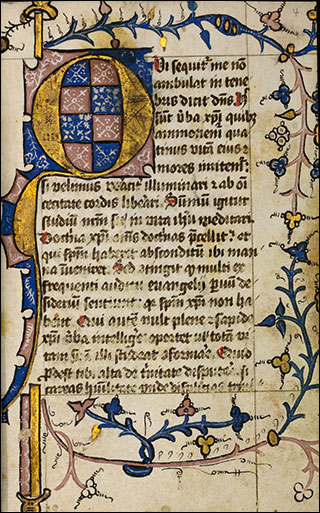 Qui sequit᷑ me nō
ambulat in tene
bris dicit dn̄s. Hec
sūt v̄ba xp̄i quibꝫ
ammonem̄ qua
tinus vitā eius ⁊
mores imitem̄:
si velimus veracit̄ illuminari ⁊ ab oī
cecitate cordis liberari. Sūmū igitur
studiū nr̄m sit in vita ih̄u meditari.
Doctrīa xp̄i om̄s doctrīas p̄cellit: ⁊
qui sp̄m haberet absconditū ibi man
na īueniret. Sed cōtīgit qͥ multi ex
frequenti auditu euangelij ꝑuū de
siderīū sentiunt: qꝛ sp̄m xp̄i non ha
bent. Qui autē vult plene ⁊ sapide
xp̄i v̄ba intellige᷑ oportet ut totā vi
tam suā illi studeat ꝯformare. Quid
ꝓdest tibi alta de t̄nitate disputare: si
careas hūilitate vnde displiceas t̄ni